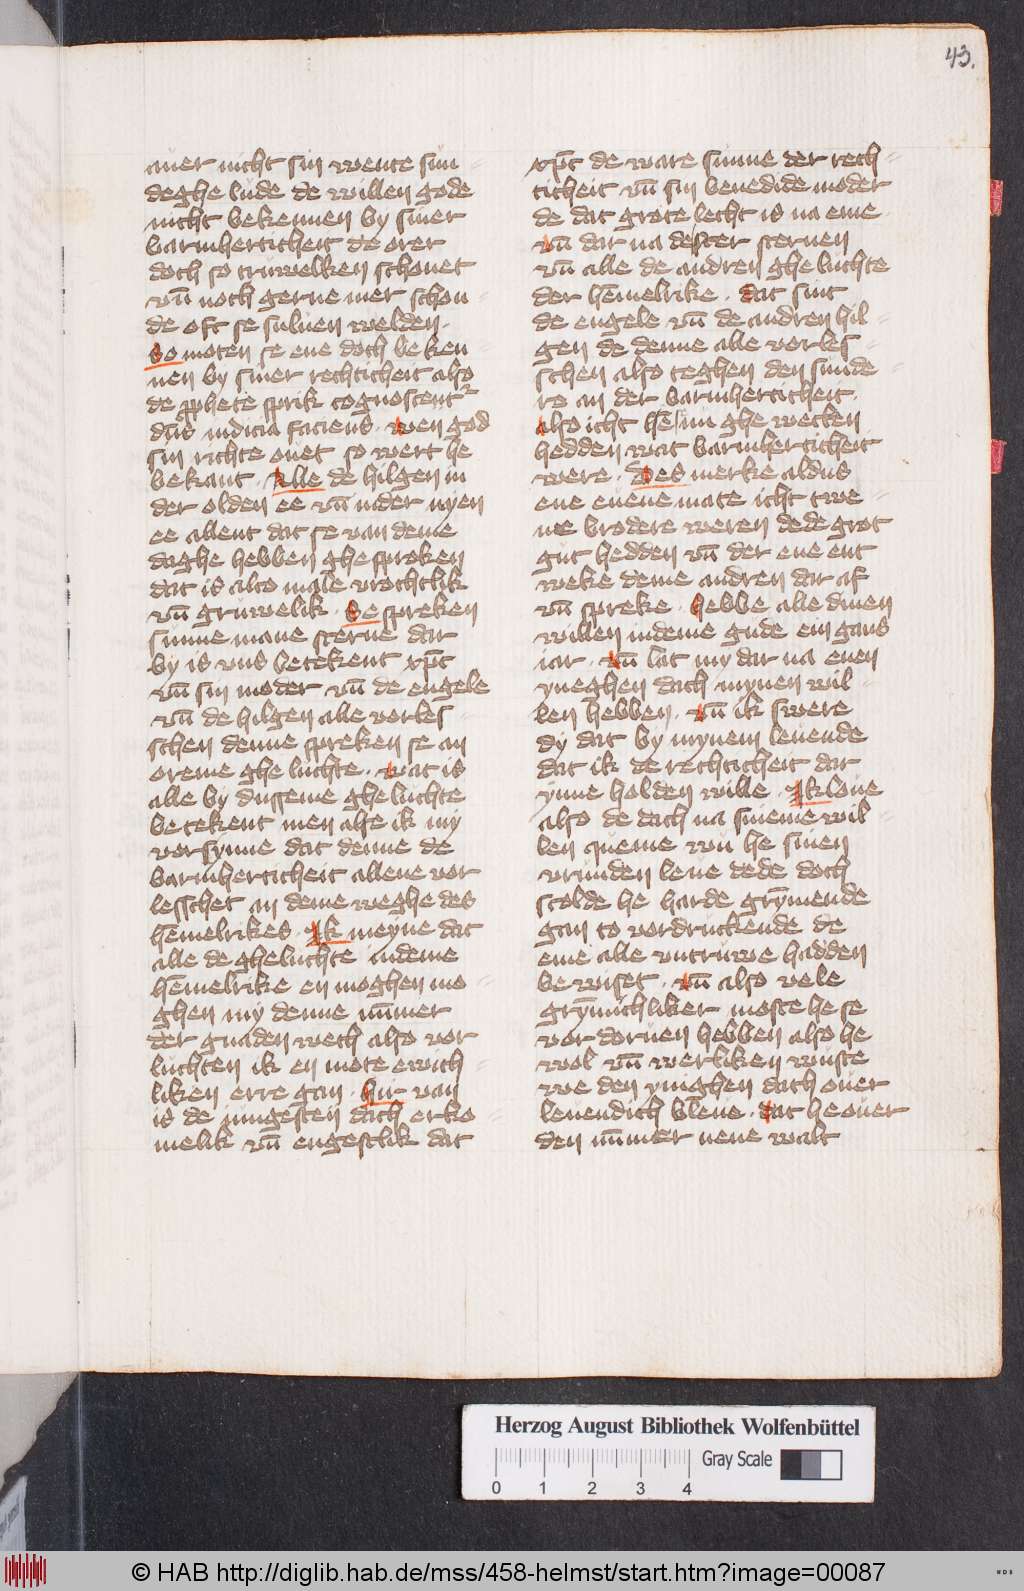 43.
auer nicht sin wente sun
deghe lude de willen gode
nicht bekennen by siner
barmherticheit de orer
doch so truwelken schonet
vn̄ noch gerne mer schon
de oft se suluen welden.
So moten se ene doch beken
nen by siner rechticheit also
de ꝓphete sprik cognoscent᷑
dn̄s iudicia faciens. wen god
sin richte ouet so wert he
bekant. Alle de hilgen in
der olden ee vn̄ in der nyen
ee allent dat se van deme
daghe hebben ghesproken
dat is alto male vrochtlik
vn̄ gruwelik. Se spreken
sunne mane sterne dar
by is vns betekent xp̄c
vn̄ sin moder vn̄ de engele
vn̄ de hilgen alle vorles
schen denne spreken se an
oreme gheluchte. wat is
alle by dusseme gheluchte
betekent men alse ik my
vorsynne dat denne de
barmherticheit allene vor
lesschet an deme weghe des
hēmelrikes. Ik meyne dat
alle de gheluchte indeme
hēmelrike en moghen mo
ghen my denne nūmer
der gnaden wech also vor
luchten ik en mote ewich
liken erre gan. hir van
is de iungesten dach erko
melik vn̄ engestlik dat
xp̄c de ware sunne der rech
ticheit vn̄ sin benedide moder
de dat grote lecht is na eme
vn̄ dar na de ster sternen
vn̄ alle de andren gheluchte
der hēmelrike. dat sint
de engele vn̄ de andren hil
gen de denne alle vorles
schen also teghen den sunde
re an der barmherticheit.
also icht hē nu ghe wecken
hedden wat barmherticheit
were. Des merke aldus
ene euene mate icht twe
ne brodere weren dede grot
gut hedden vn̄ der ene ent
weke deme andren dar af
vn̄ spreke. hebbe alle dinen
willen indeme gude ein gans
iar. vn̄ lat my dar na enen
yneghen dach mynen wil
len hebben. vn̄ ik swere
dy dat by mynem leuende
dat ik de rechticheit dar
ynne holden wille. Ik loue
also de dach na sineme wil
len queme wu he sinen
vrunden leue dede doch
scolde he harde grȳmende
gan to vordruckende de
eme alle vntruwe hadden
bewiset. vn̄ also vele
grȳmichliker moste he se
vordoruen hebben also he
wol vn̄ werliken wuste
we den ynghen dach ouer
leuendich bleue. dat he ouer
den nūmer nene walt
Herzog August Bibliothek Wolfenbüttel
Gray Scale
0 1 2 3 4
© HAB http://diglib.hab.de/mss/458-helmst/start.htm?image=00087